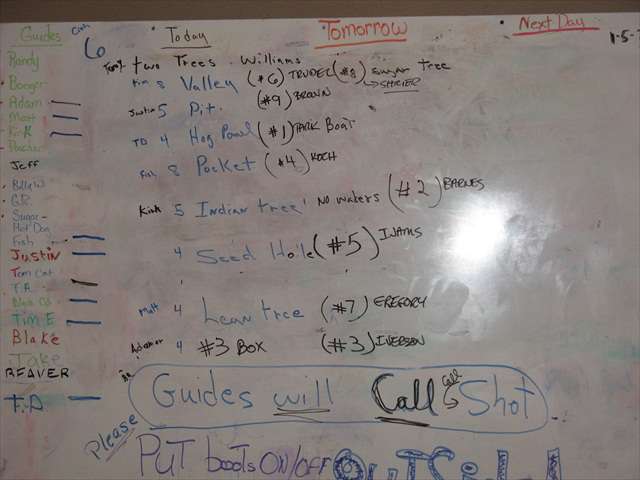 Guides
6
Today
Tomorrow
Next Day
Randy
Booger
Adam
Matt
Kirk
Jeff
Billy W
G.R.
Sugar
Hot Dog
Fish
Justin
Tom Cat
T.A.
Tim E
Blake
Jake
REAVER
T.A
two Trees Williams
Kim 8 Valley (#6) TRUDEL (#8) sugar Tree
SHRIER
Justin 5 Pit (#9) BROWN
TD 4 Hog Powl (#1) TARK Boat
Fish 8 Pocket (#4) KOCH
Kirk 5 Indian tree No waters (#2) BARNES
4 Seed Hole (#5) IJAMS
Matt 4 Lean tree (#7) GREGORY
4 #3 BOX (#3) IVERSON
Guides will Call Call Shot
Please
PUT boots ON/OFF OUTSIDE